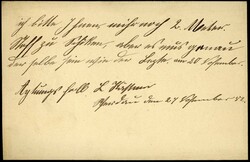 ich bitte Ihnen, mihr noch 2. Meter
Stoff zu schikken, aber es mus genau
der selbe sein wie der Lezte. am 20 November.
Achtungs foll L
den 27 November 92.